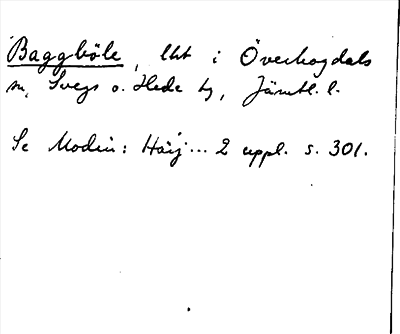 Baggböle, lht i Överhogdals
sn, Svegs o. Hede tg, Jämtl. l.
Se Modin: Härj... 2 uppl. s. 301.